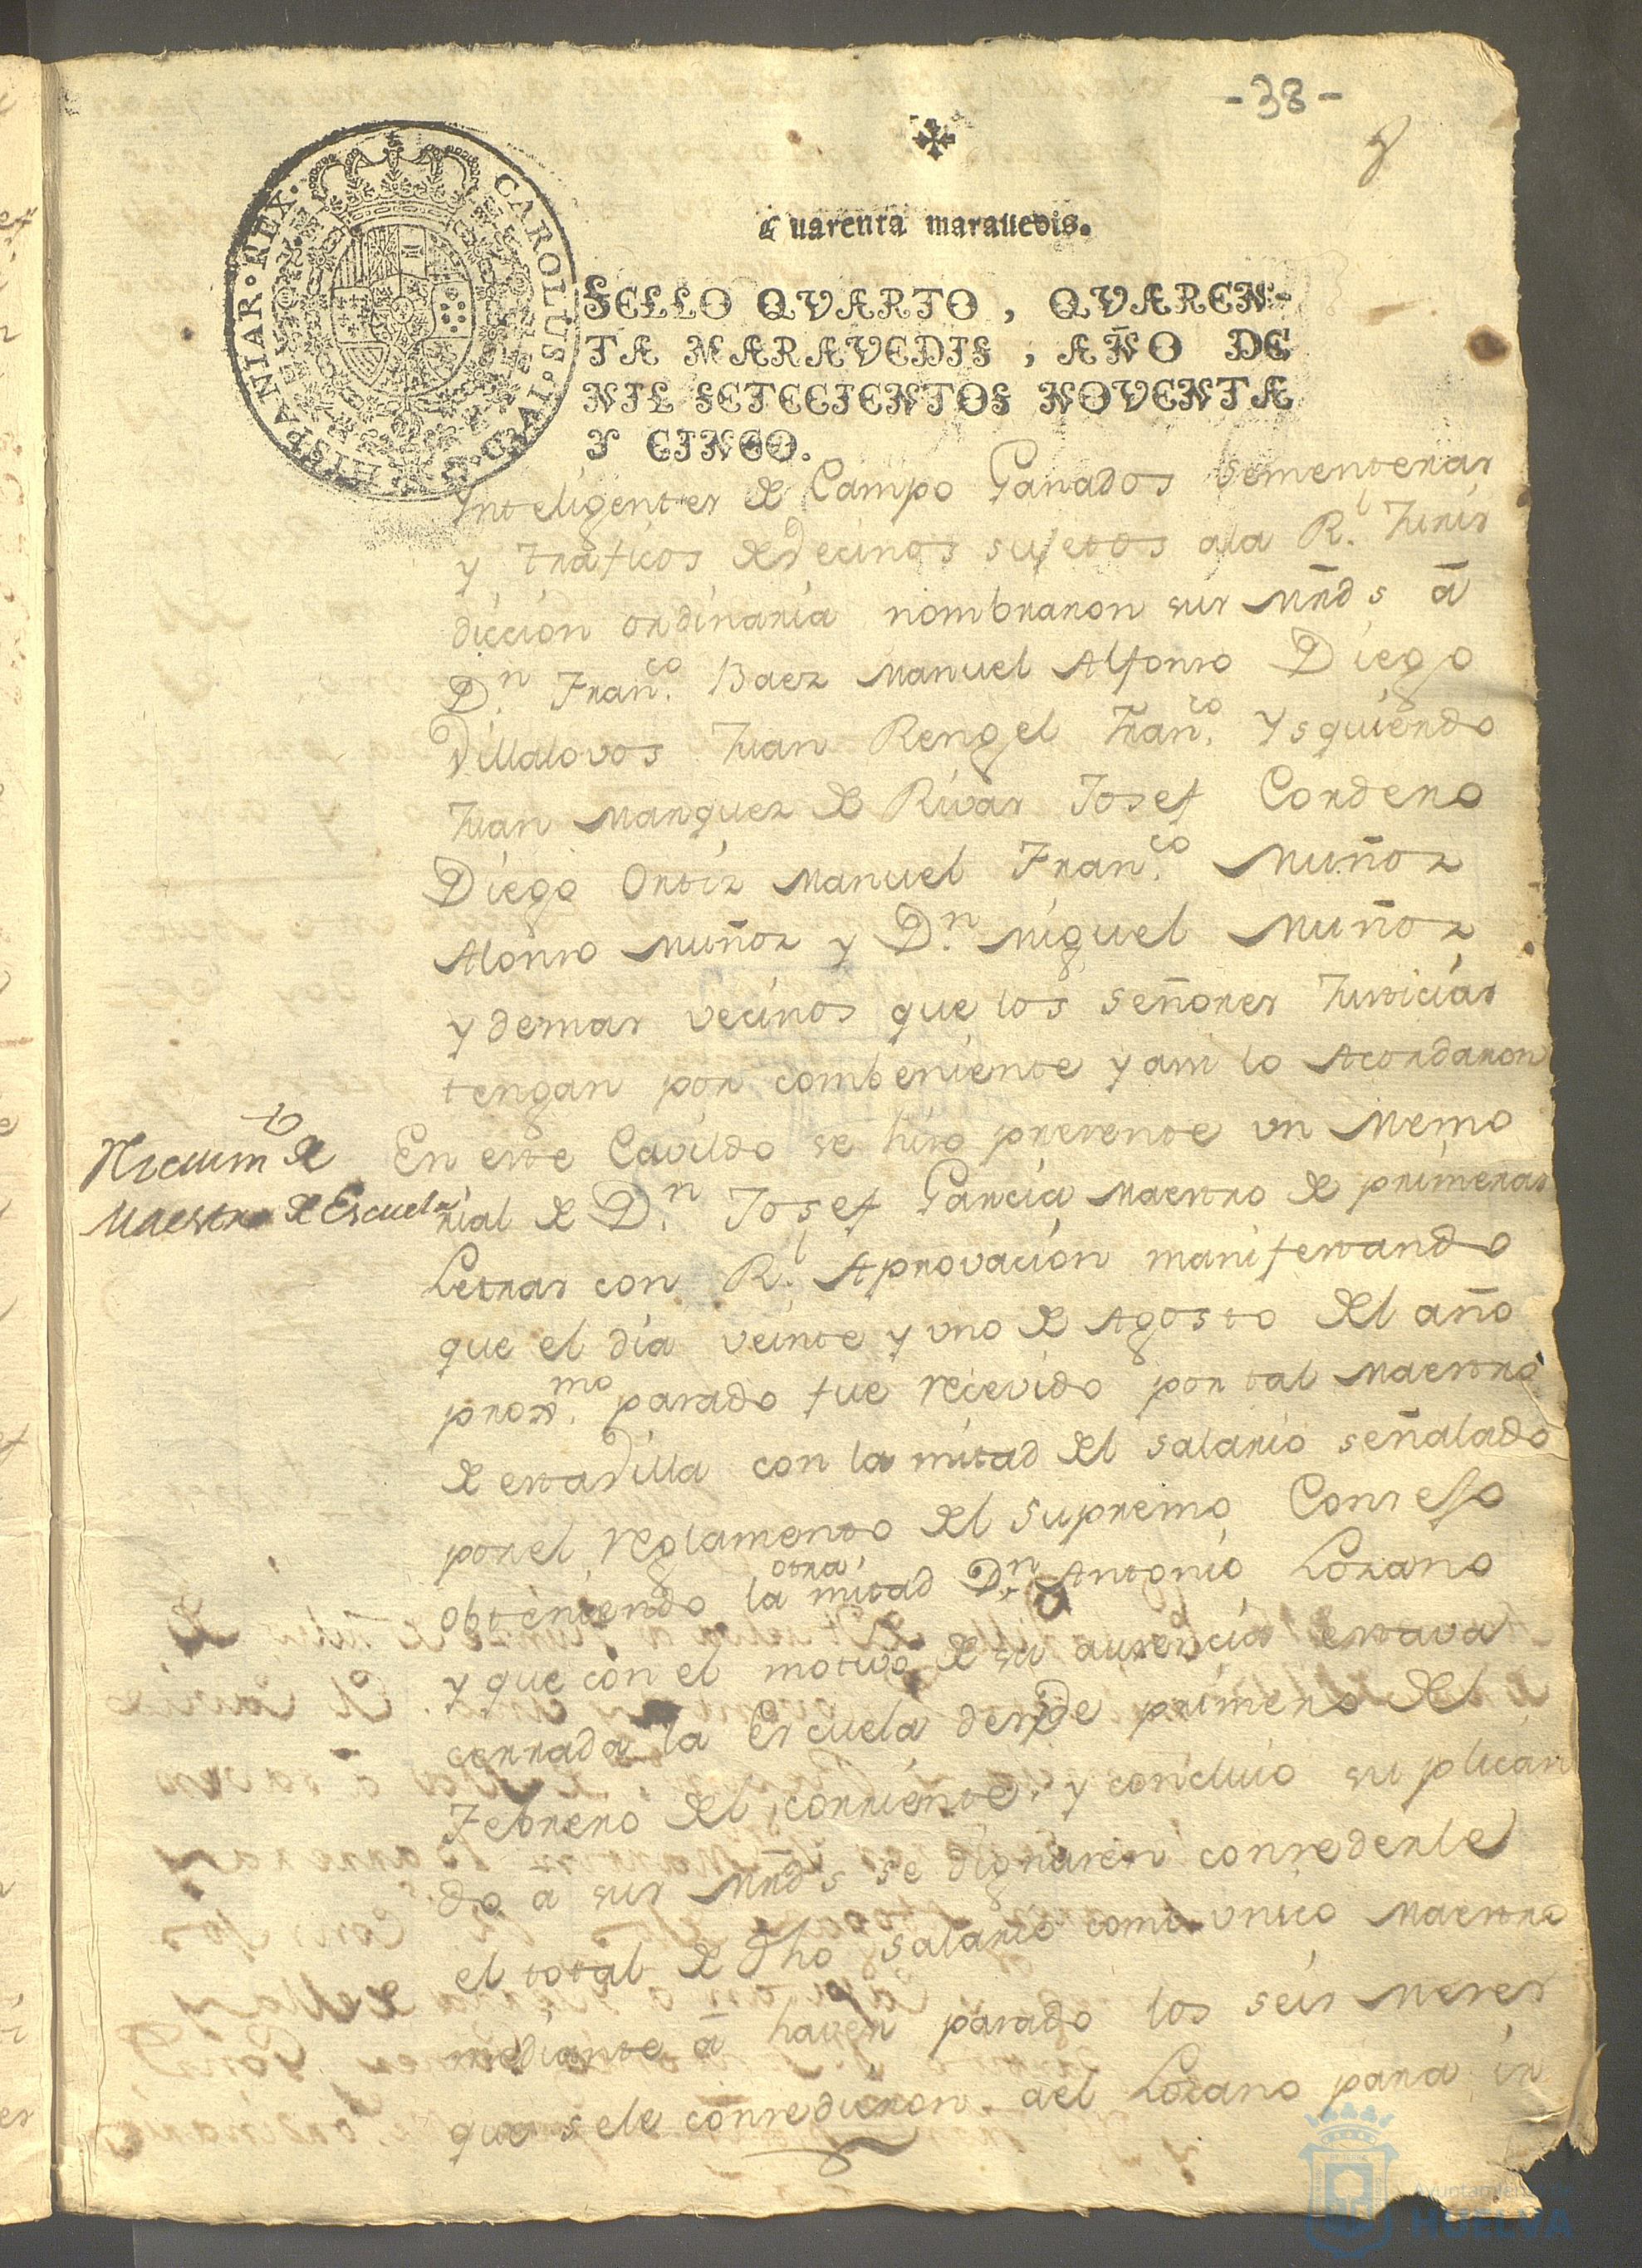 -38-
Cuarenta marauedis.
CAROLUS·IV·D·G·HISPANIAR·REX·
SELLO QVARTO, QVAREN-
TA MARAVEDIS, AÑO DE
MIL SETECIENTOS NOVENTA
Y CINCO.
Inteligentes de Campo Ganados sementeras
y traficos de vecinos sujetos ala R.l Juris
diccion ordinaria nombraron sus Mrds ā
D.n Fran.co Baez Manuel Alfonso Diego
Villalovos Juan Rengel Fran.co Ysquierdo
Juan Marquez de Rivas Josef Cordero
Diego Ortiz Manuel Fran.co Muñoz
Alonso Muñoz y D.n Miguel Muñoz
y demas vecinos que los señores Justicias
tengan por combeniente y assi lo Acordaron
Nicuim.to de
Maestro de Escuela
En este Cavildo se hiso presente un Memo
rial de D.n Josef Garcia Maestro de primeras
Letras con R.l Aprovacion manifestando
que el dia veinte y uno de Agosto del año
prox.mo pasado fue recevido por tal Maestro
de estavilla con la mitad del salario señalado
porel reglamento del supremo Consejo
obteniendo la otra mitad D.n Antonio Lozano
y que con el motivo de su ausencia estava
cerrada la Escuela desde primero del
Febrero del corriente. y concluio suplican
do a sus Mrds se dignasen consederle
el total de dho salario como unico Maestro
mediante ā haver pasado los seis Meses
que sele consedieron ael Lozano para ir
Ayuntamiento de
HUELVA